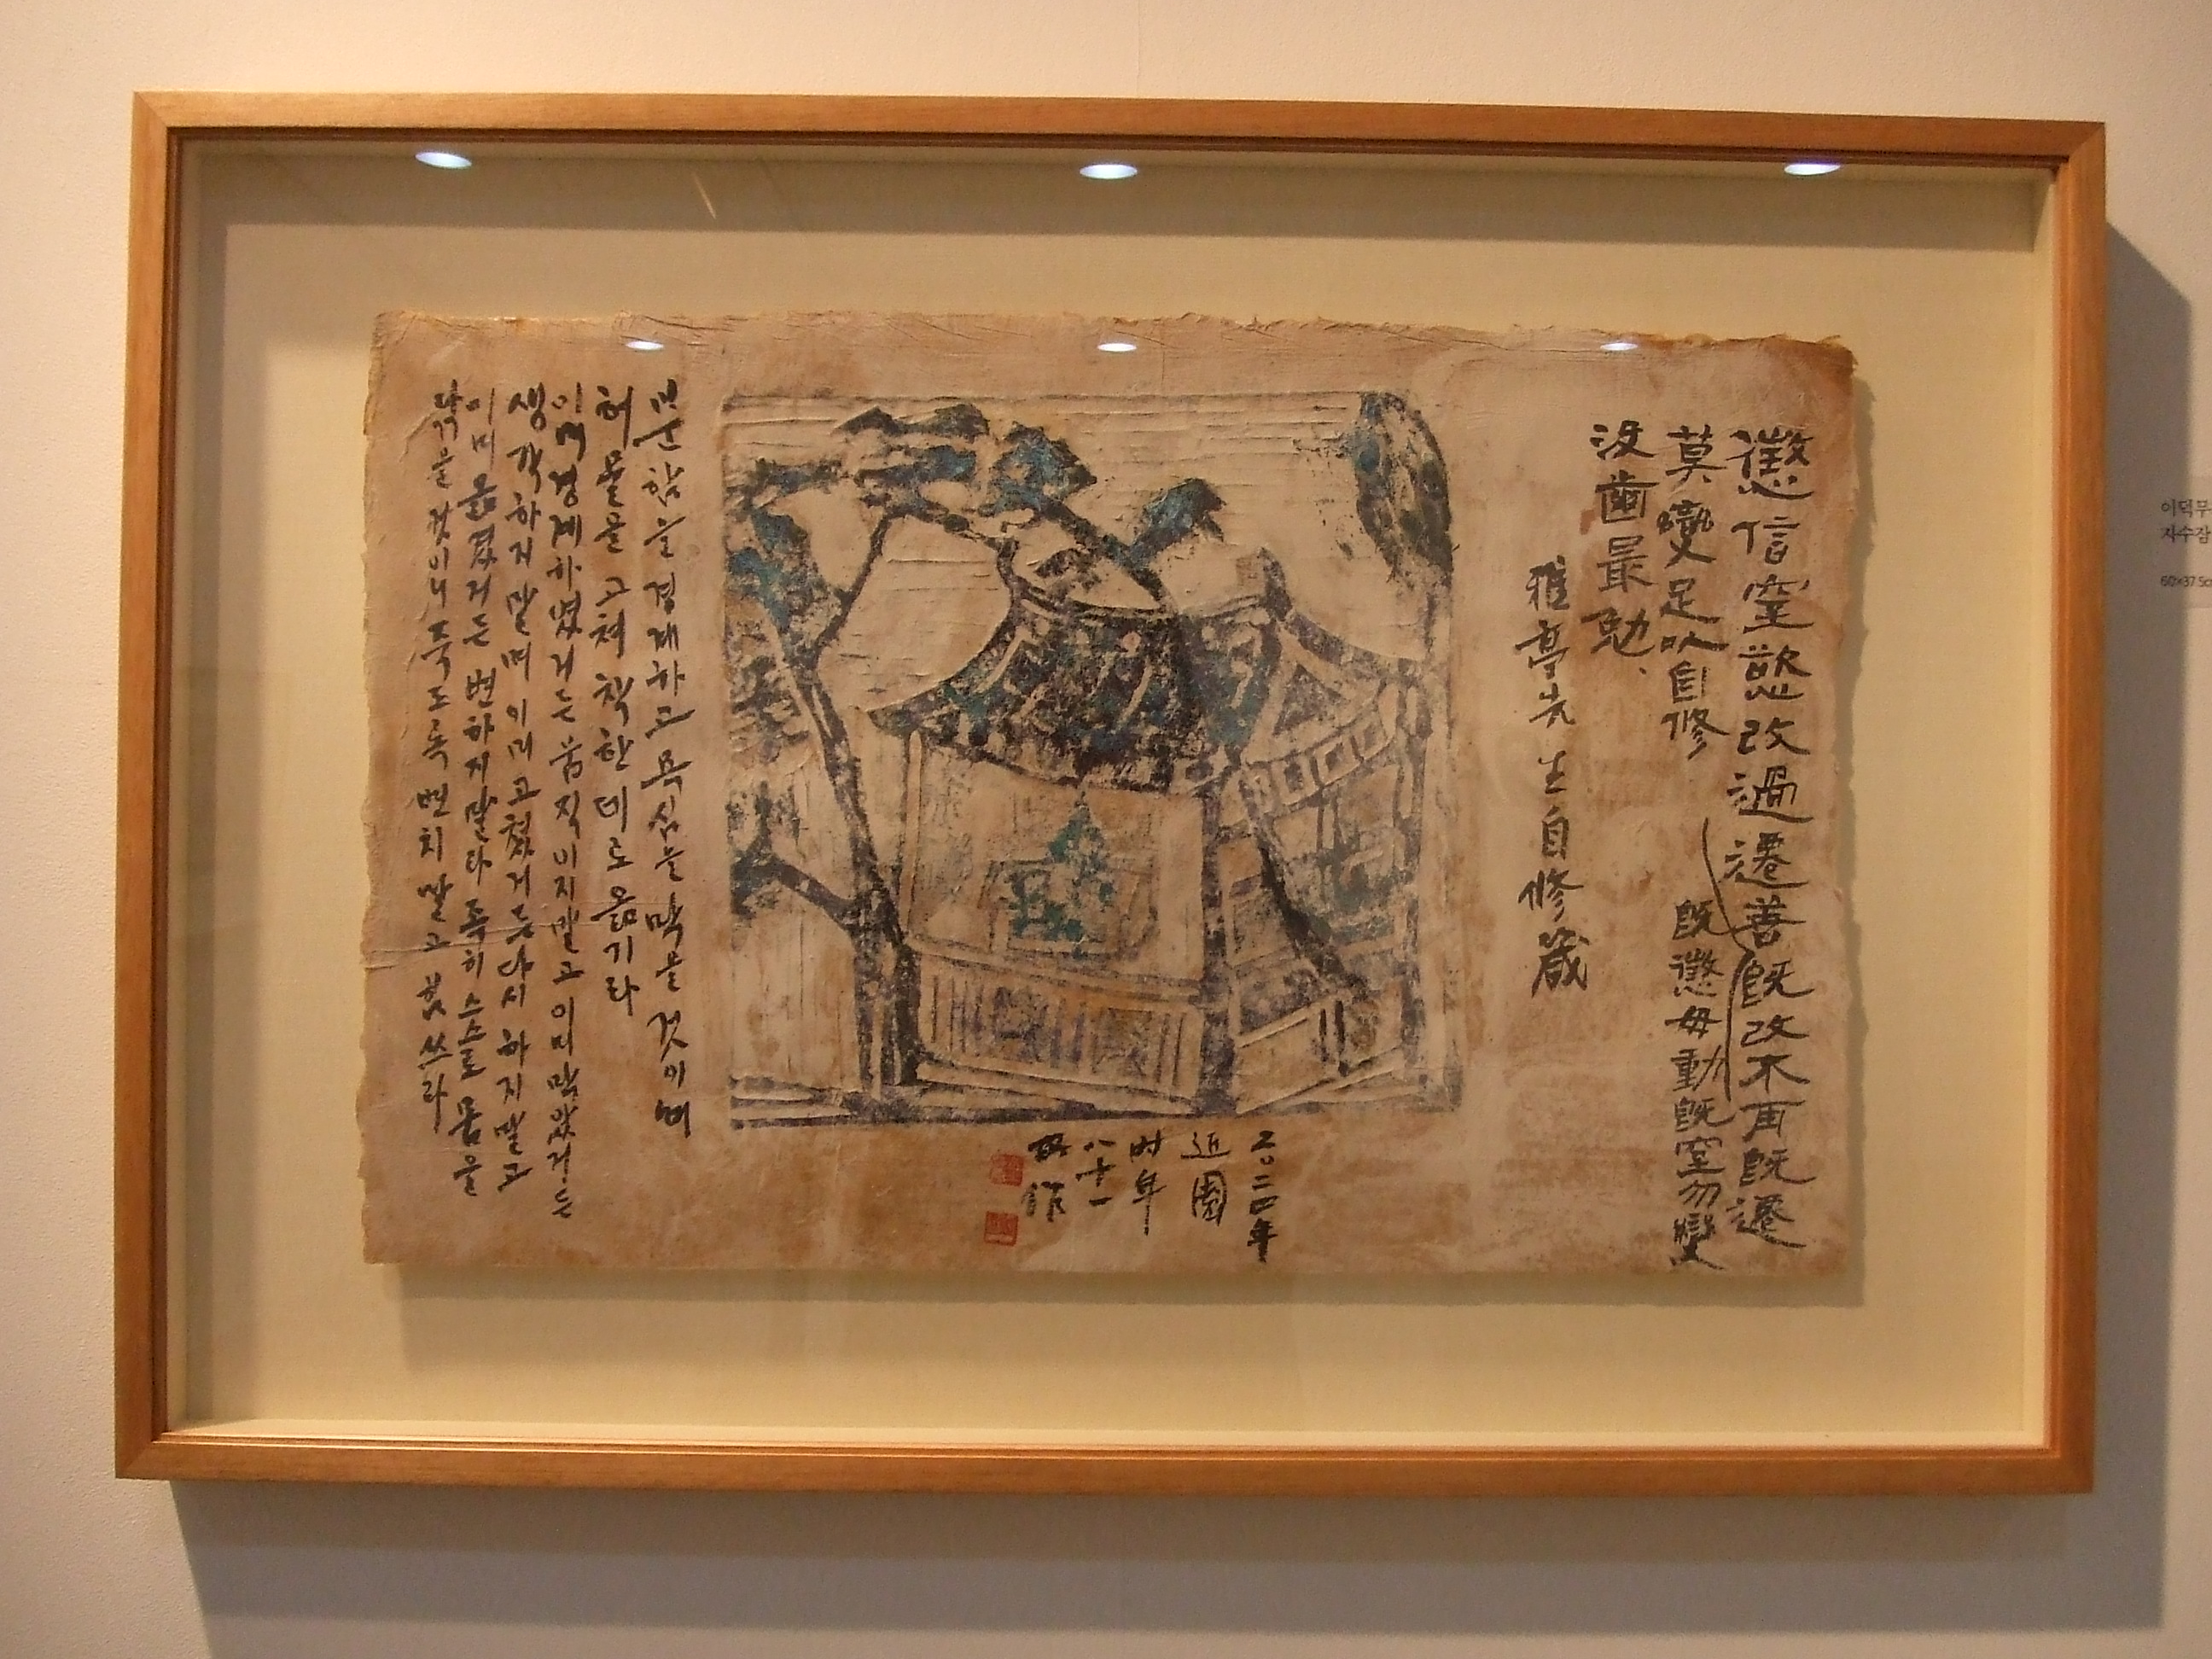 懲信窒慾改過遷善旣改不再旣遷
莫變足以自修
旣懲毋動旣窒勿變
沒齒最勉
雅亭先生自修箴
二〇二四年
近園
时年
八十一
作
분함을 경계하고 욕심을 막을 것이며
허물을 고쳐 착한데로 옮기라
이미 경계하였거든 움직이지말고 이미 막았거든
생각하지말며 이미 고쳤거든 다시 하지말고
이미 옮겼거든 변하지말라 족히 스스로 몸을
닦을 것이니 죽도록 변치말고 힘쓰라
이덕무
자수잠
60×37.5c